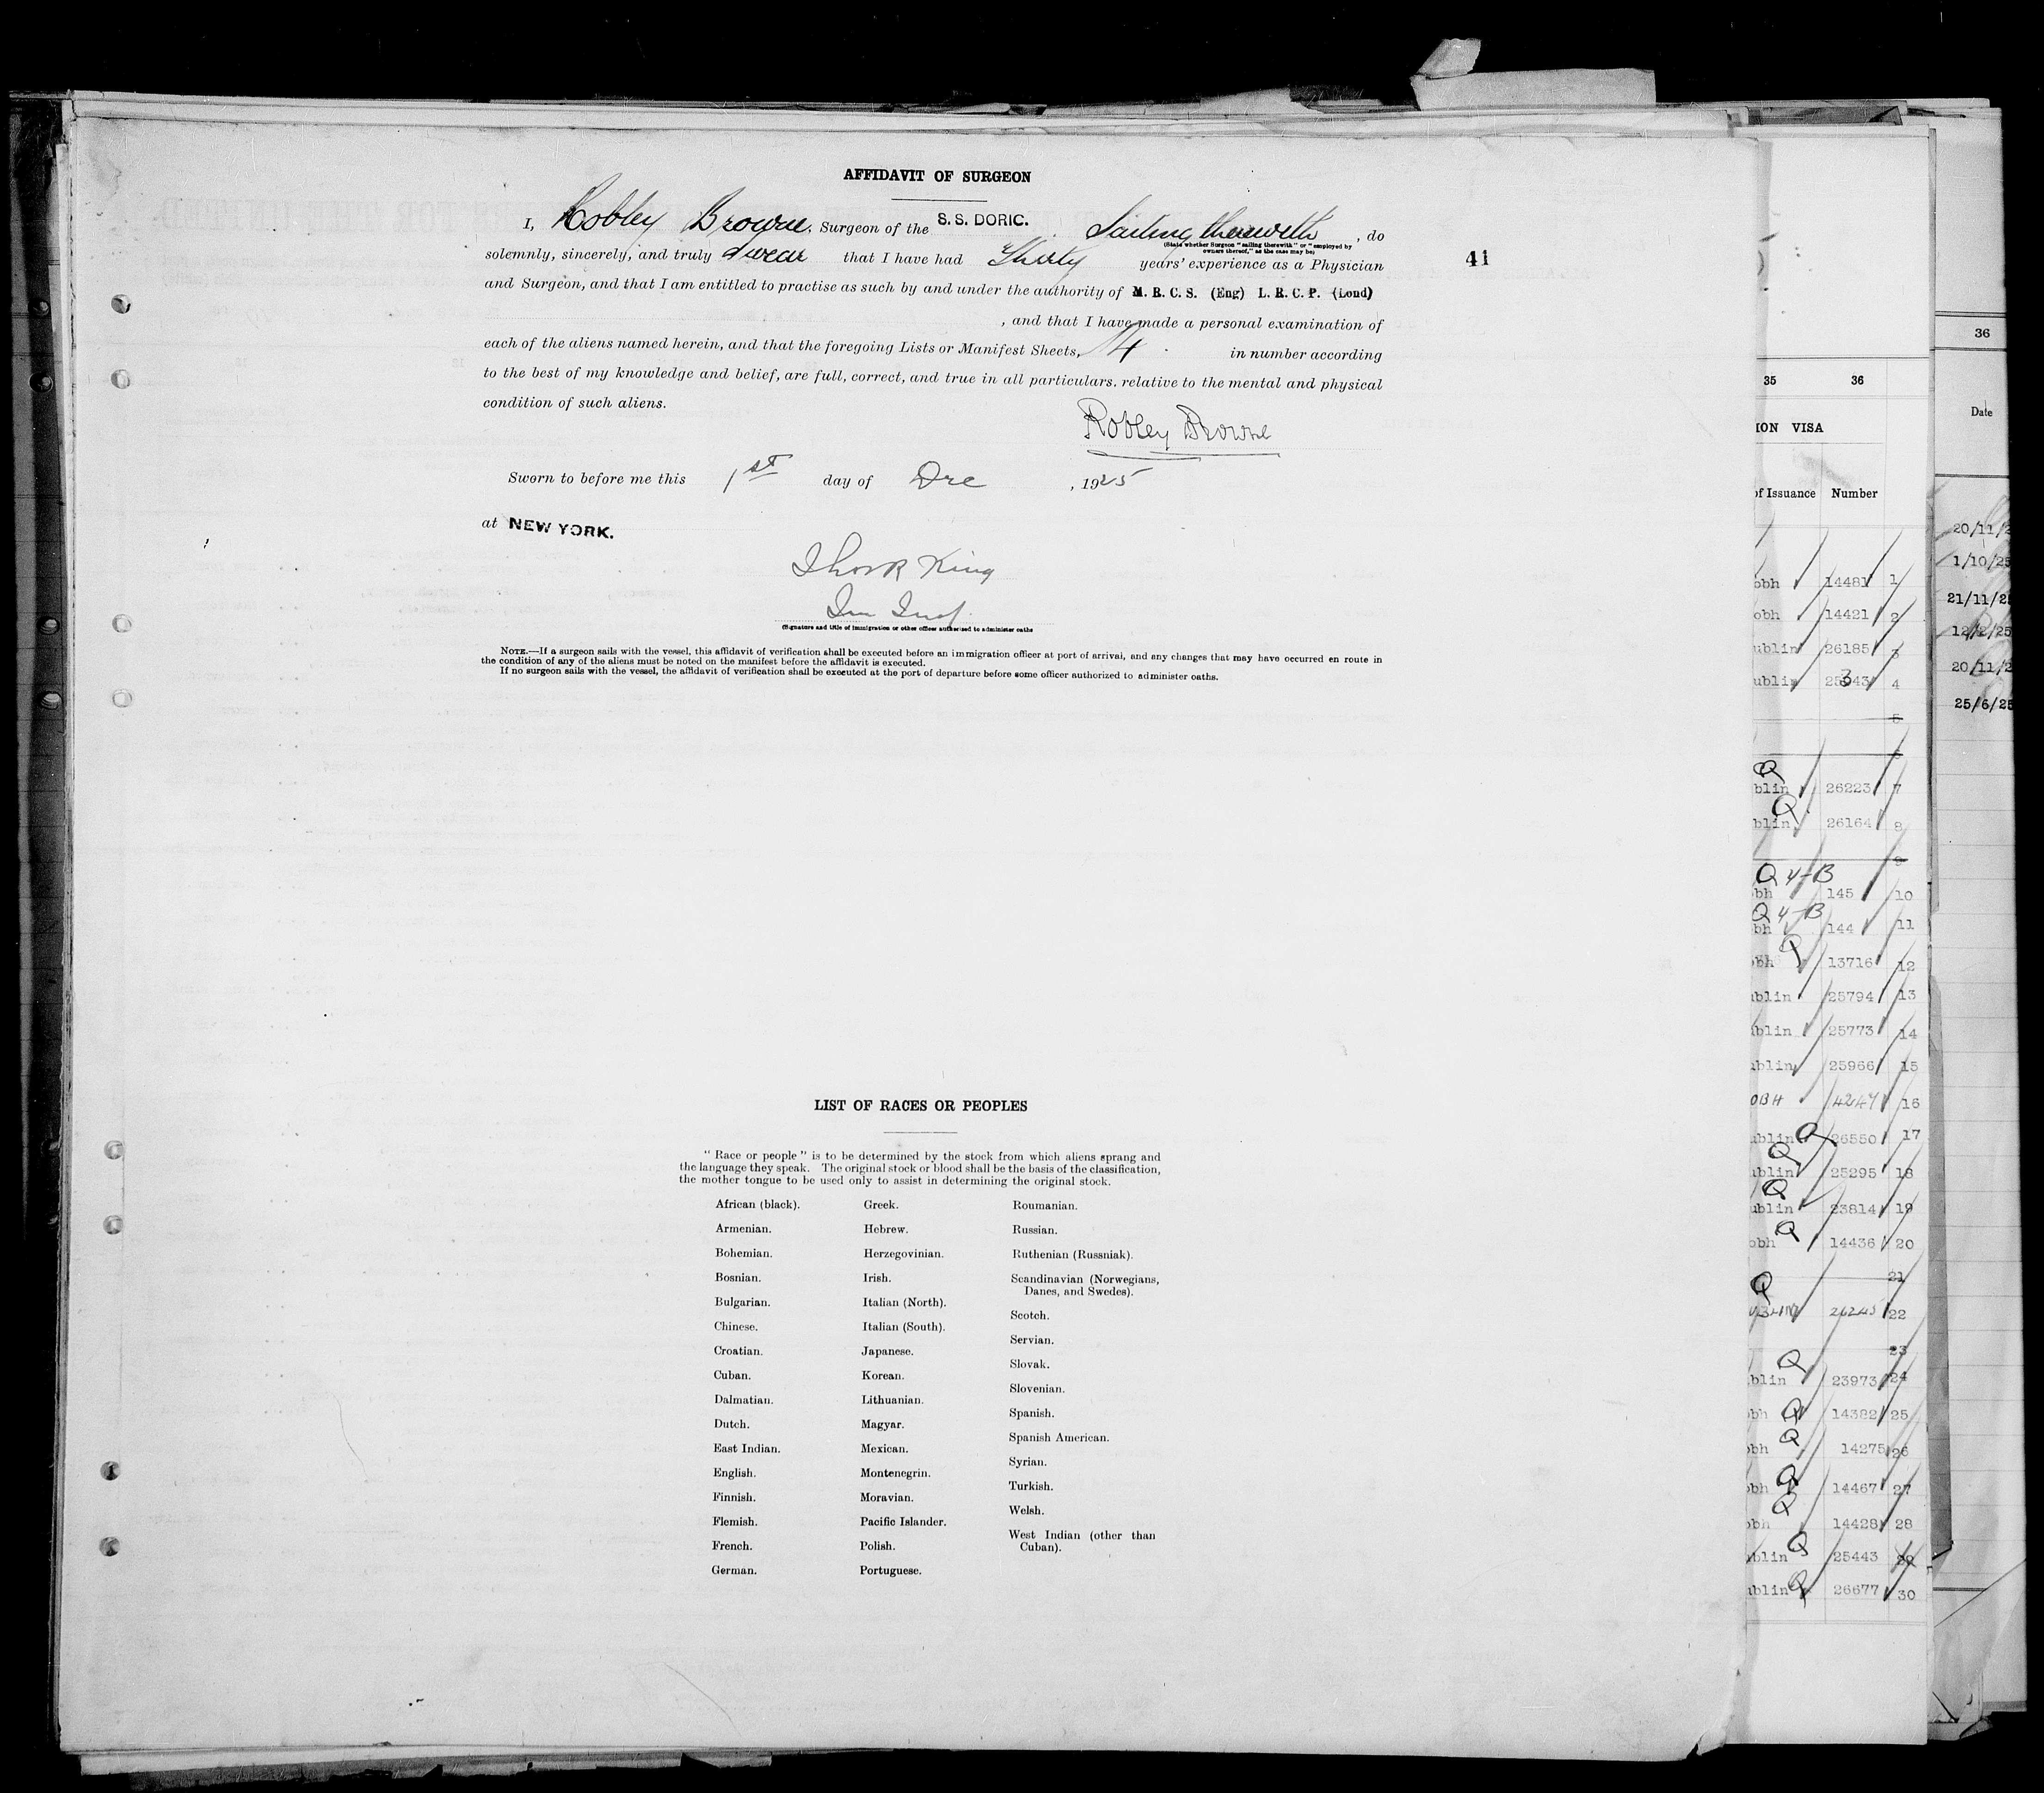 AFFIDAVIT OF SURGEON
I, Robley Browne, Surgeon of the S.S. DORIC. Sailing therewith, do
(State whether Surgeon "sailing therewith" or "employed by
owners thereof," as the case may be)
solemnly, sincerely, and truly swear that I have had Thirty years' experience as a Physician
41
and Surgeon, and that I am entitled to practise as such by and under the authority of M.R.C.S. (Eng) L.R.C.P. (Lond)
, and that I have made a personal examination of
each of the aliens named herein, and that the foregoing Lists or Manifest Sheets, in number according
to the best of my knowledge and belief, are full, correct, and true in all particulars, relative to the mental and physical
condition of such aliens.
Robley Browne
Sworn to before me this 1st day of Dec, 1925
at NEW YORK.
King
Im Insp.
(Signature and title of immigration or other officer authorised to administer oaths
NOTE.—If a surgeon sails with the vessel, this affidavit of verification shall be executed before an immigration officer at port of arrival, and any changes that may have occurred en route in
the condition of any of the aliens must be noted on the manifest before the affidavit is executed.
If no surgeon sails with the vessel, the affidavit of verification shall be executed at the port of departure before some officer authorized to administer oaths.
LIST OF RACES OR PEOPLES
"Race or people" is to be determined by the stock from which aliens sprang and
the language they speak. The original stock or blood shall be the basis of the classification,
the mother tongue to be used only to assist in determining the original stock.
African (black).
Armenian.
Bohemian.
Bosnian.
Bulgarian.
Chinese.
Croatian.
Cuban.
Dalmatian.
Dutch.
East Indian.
English.
Finnish.
Flemish.
French.
German.
Greek.
Hebrew.
Herzegovinian.
Irish.
Italian (North).
Italian (South).
Japanese.
Korean.
Lithuanian.
Magyar.
Mexican.
Montenegrin.
Moravian.
Pacific Islander.
Polish.
Portuguese.
Roumanian.
Russian.
Ruthenian (Russniak).
Scandinavian (Norwegians,
Danes, and Swedes).
Scotch.
Servian.
Slovak.
Slovenian.
Spanish.
Spanish American.
Syrian.
Turkish.
Welsh.
West Indian (other than
Cuban).
35 36
ION VISA
of Issuance Number
obh 14481 1
obh 14421 2
ublin 26185 3
ublin 4
5
6
Q
blin 26223 7
Q
blin 26164 8
9
Q 4-B
bh 145 10
Q 4-B
bh 144 11
Q
obh 13716 12
ublin 25794 13
ublin 25773 14
ublin 25966 15
OBH 4247 16
ublin Q 26550 17
Q
ublin 25295 18
Q
ublin 23814 19
Q
obh 14436 20
21
Q
UBLIN 26245 22
23
Q
blin 23973 24
obh Q 14382 25
obh Q 14275 26
Q
obh 14467 27
Q
obh 14428 28
Q
ublin 25443 29
ublin Q 26677 30
36
Date
20/11/2
1/10/25
21/11/2
12/2/25
20/11/2
25/6/25